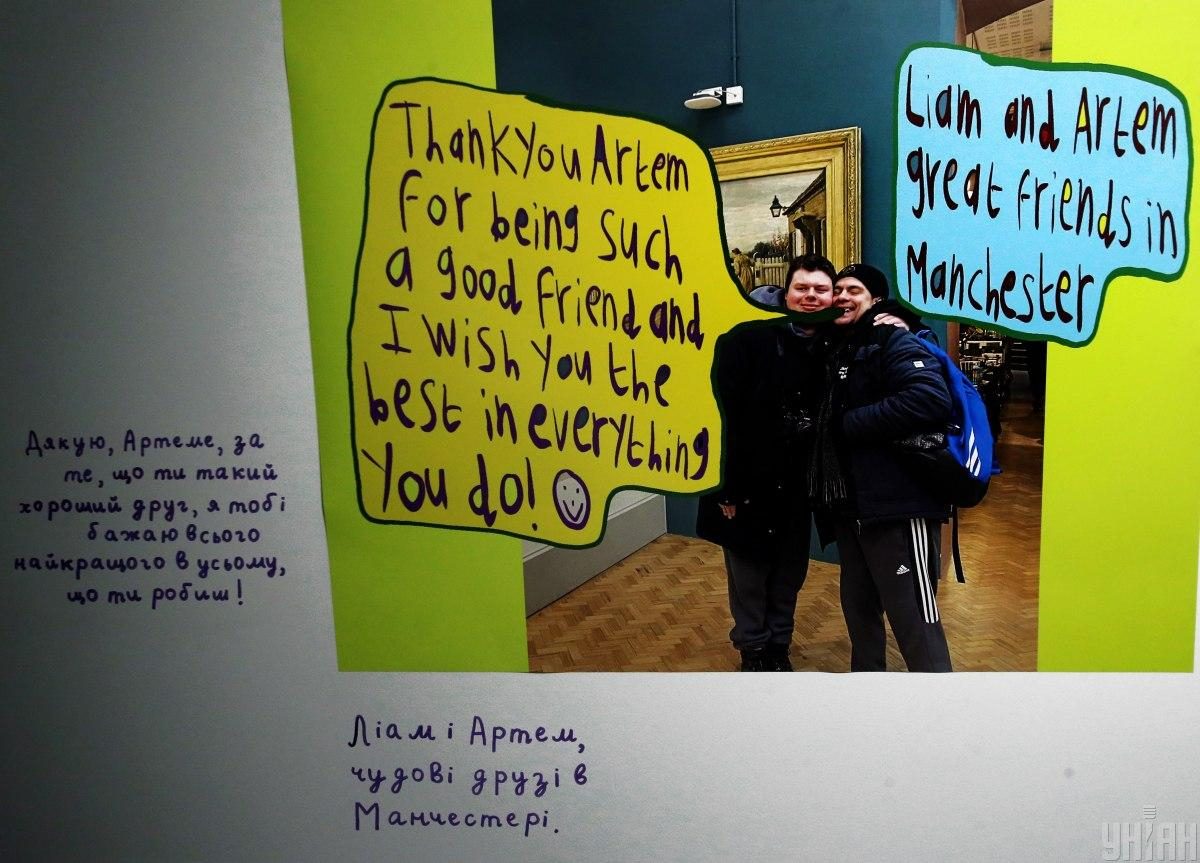 Thank you Artem
for being such
a good friend and
I wish you the
best in everything
you do!
Liam and Artem
great friends in
Manchester
Дякую, Артеме, за
те, що ти такий
хороший друг, я тобі
бажаю всього
найкращого в усьому,
що ти робиш!
Ліам і Артем,
чудові друзі в
Манчестері.
adidas
УНІАН